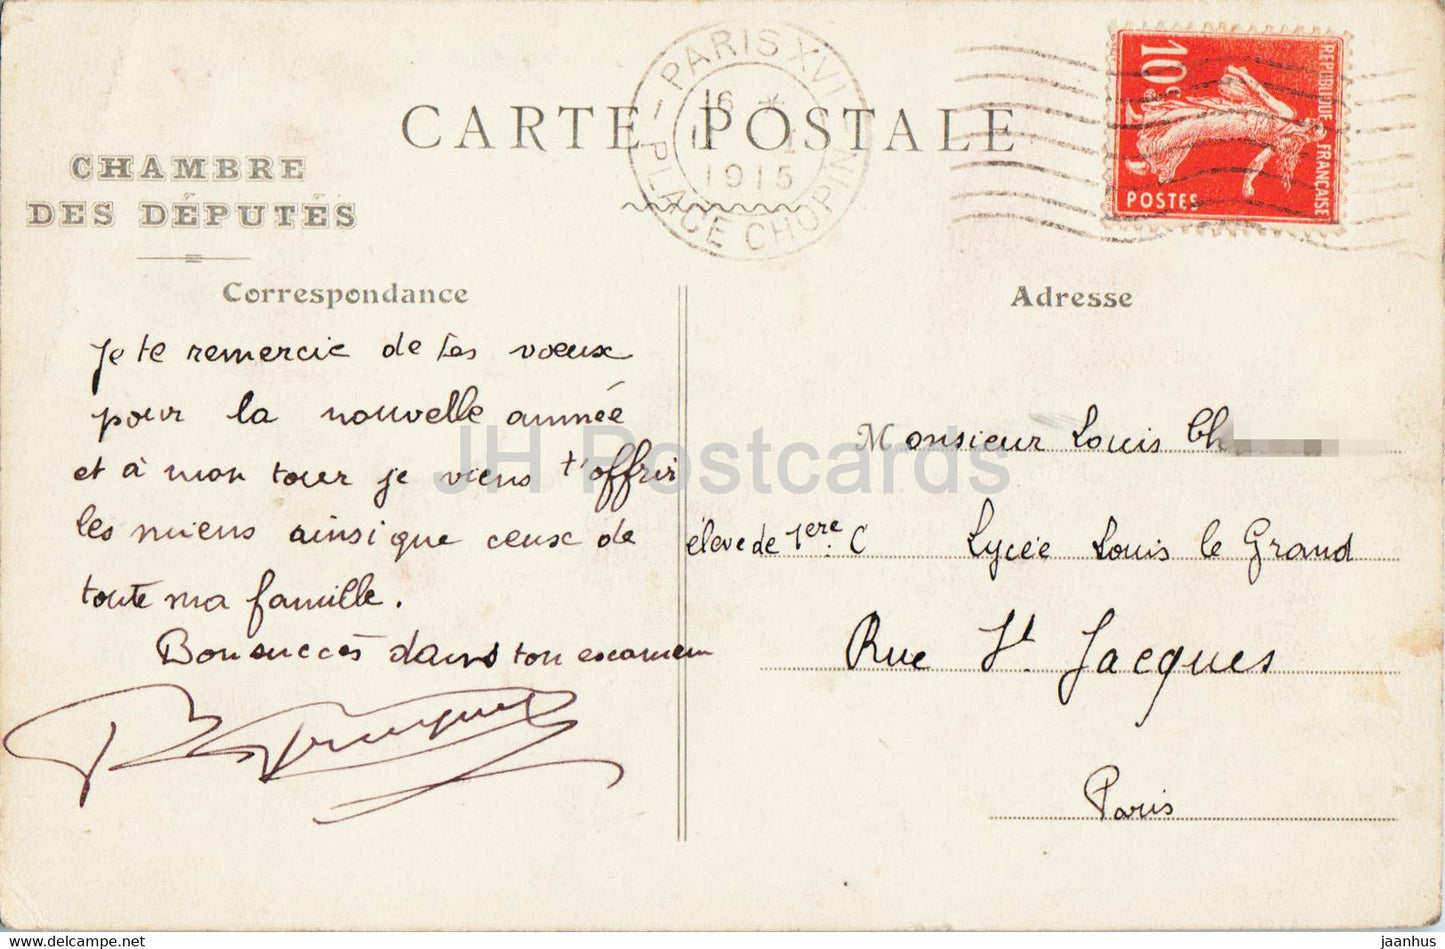 CARTE POSTALE
CHAMBRE
DES DÉPUTÉS
PARIS XVI
16 *
1915
PLACE CHOPIN
10c
REPUBLIQUE FRANÇAISE
POSTES
Correspondance
Je te remercie de tes vœux
pour la nouvelle année
et à mon tour je viens t'offrir
les miens ainsi que ceux de
toute ma famille.
Bon succès dans ton examen
Adresse
Monsieur Louis
élève de 1ere C Lycée Louis le Grand
Rue St. Jacques
Paris
JH Postcards
www.delcampe.net
jaanhus